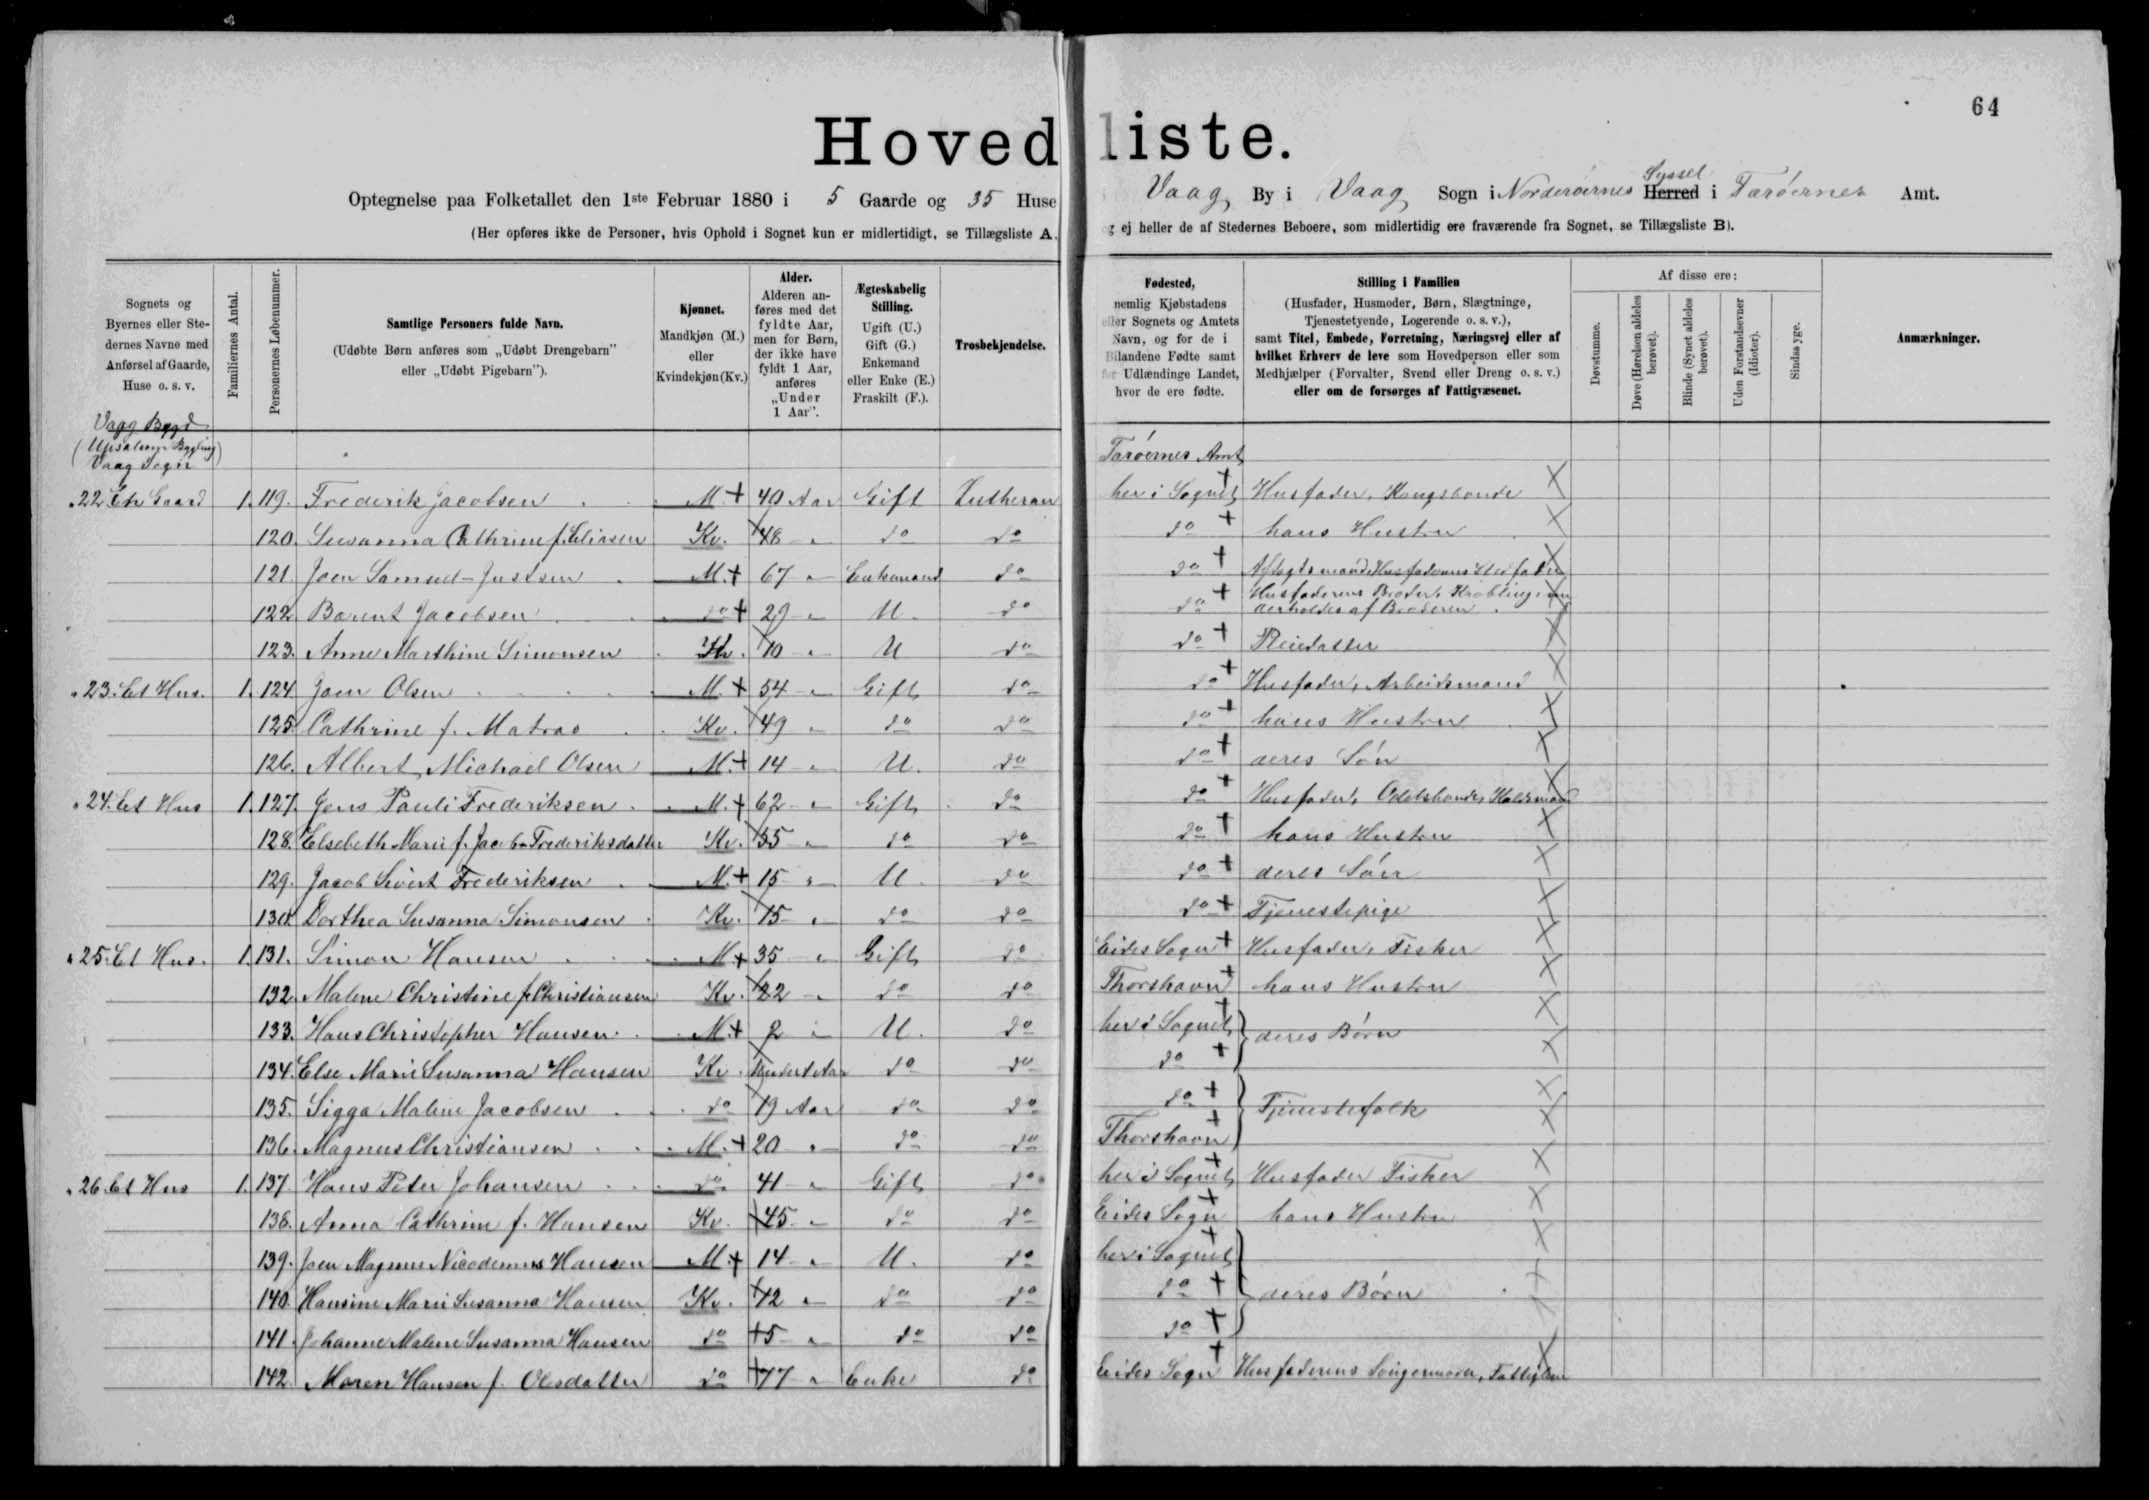 64
Hovedliste.
Optegnelse paa Folketallet den 1ste Februar 1880 i 5 Gaarde og 35 Huse Vaag By i Vaag Sogn i Norderöernes Syssel Herred i Færöernes Amt.
(Her opføres ikke de Personer, hvis Ophold i Sognet kun er midlertidigt, se Tillægsliste A, og ej heller de af Stedernes Beboere, som midlertidig ere fraværende fra Sognet, se Tillægsliste B).
Sognets og Byernes eller Stedernes Navne med Anførsel af Gaarde, Huse o. s. v.
Familiernes Antal.
Personernes Løbenummer.
Samtlige Personers fulde Navn.
(Udøbte Børn anføres som „Udøbt Drengebarn" eller „Udøbt Pigebarn").
Kjønnet.
Mandkjøn (M.) eller Kvindekjøn (Kv.)
Alder.
Alderen anføres med det fyldte Aar, men for Børn, der ikke have fyldt 1 Aar, anføres „Under 1 Aar".
Ægteskabelig Stilling.
Ugift (U.) Gift (G.) Enkemand eller Enke (E.) Fraskilt (F.).
Trosbekjendelse.
Fødested,
nemlig Kjøbstadens eller Sognets og Amtets Navn, og for de i Bilandene Fødte samt for Udlændinge Landet, hvor de ere fødte.
Stilling i Familien
(Husfader, Husmoder, Børn, Slægtninge, Tjenestetyende, Logerende o. s. v.),
samt Titel, Embede, Forretning, Næringsvej eller af hvilket Erhverv de leve som Hovedperson eller som Medhjælper (Forvalter, Svend eller Dreng o. s. v.) eller om de forsørges af Fattigvæsenet.
Af disse ere:
Døvstumme.
Døve (Hørelsen aldeles berøvet).
Blinde (Synet aldeles berøvet).
Uden Forstandsevner (Idioter).
Sindssyge.
Anmærkninger.
Vaag Bygd
Vaag Sogn
Færöernes Amt
22. En Gaard 1. 119. Frederik Jacobsen M. 40 Aar Gift Lutheran her i Sognet Husfader, Kongsbonde
120. Susanna Cathrine f. Eliasen Kv. 48 " do do do hans Hustru
121. Joen Samuel Justsen M. 67 " Enkemand do do Aftægtsmand Husfaderens Stedfader
122. Barent Jacobsen do 29 " U. do do Husfaderens Broder, Krøbling, underholdes af Broderen
123. Anne Marthine Simonsen Kv. 10 " U do do Pleiedatter
23. Et Hus. 1. 124. Joen Olsen M. 54 " Gift do do Husfader, Arbeidsmand
125. Cathrine f. Matras Kv. 49 " do do do hans Hustru
126. Albert Michael Olsen M. 14 " U. do do deres Søn
24. Et Hus 1. 127. Jens Pauli Frederiksen M. 62 " Gift do do Husfader, Odelsbonde,
128. Elsebeth Marie f. Jacob Frederiksdatter Kv. 55 " do do do hans Hustru
129. Jacob Sivert Frederiksen M. 15 " U do do deres Søn
130. Dorthea Susanna Simonsen Kv. 15 " do do do Tjenestepige
25. Et Hus. 1. 131. Simon Hansen M 35 " Gift do Eides Sogn Husfader, Fisker
132. Malene Christine f. Christiansen Kv. 22 " do do Thorshavn hans Hustru
133. Hans Christopher Hansen M. 2 " U. do her i Sognet deres Børn
134. Else Marie Susanna Hansen Kv. Under 1 Aar do do do
135. Sigga Malene Jacobsen do 19 Aar do do do Tjenestefolk
136. Magnus Christiansen M. 20 " do do Thorshavn
26. Et Hus 1. 137. Hans Peter Johansen do 41 " Gift do her i Sognet Husfader Fisker
138. Anna Cathrine f. Hansen Kv. 45 " do do Eides Sogn hans Hustru
139. Joen Magnus Nicodemus Hansen M. 14 " U. do her i Sognet
140. Hansine Marie Susanna Hansen Kv. 12 " do do do deres Børn
141. Johanne Malene Susanna Hansen do 5 " do do do
142. Maren Hansen f. Olesdatter do 77 " Enke do Eides Sogn Husfaderens Svigermoder, Fattiglem